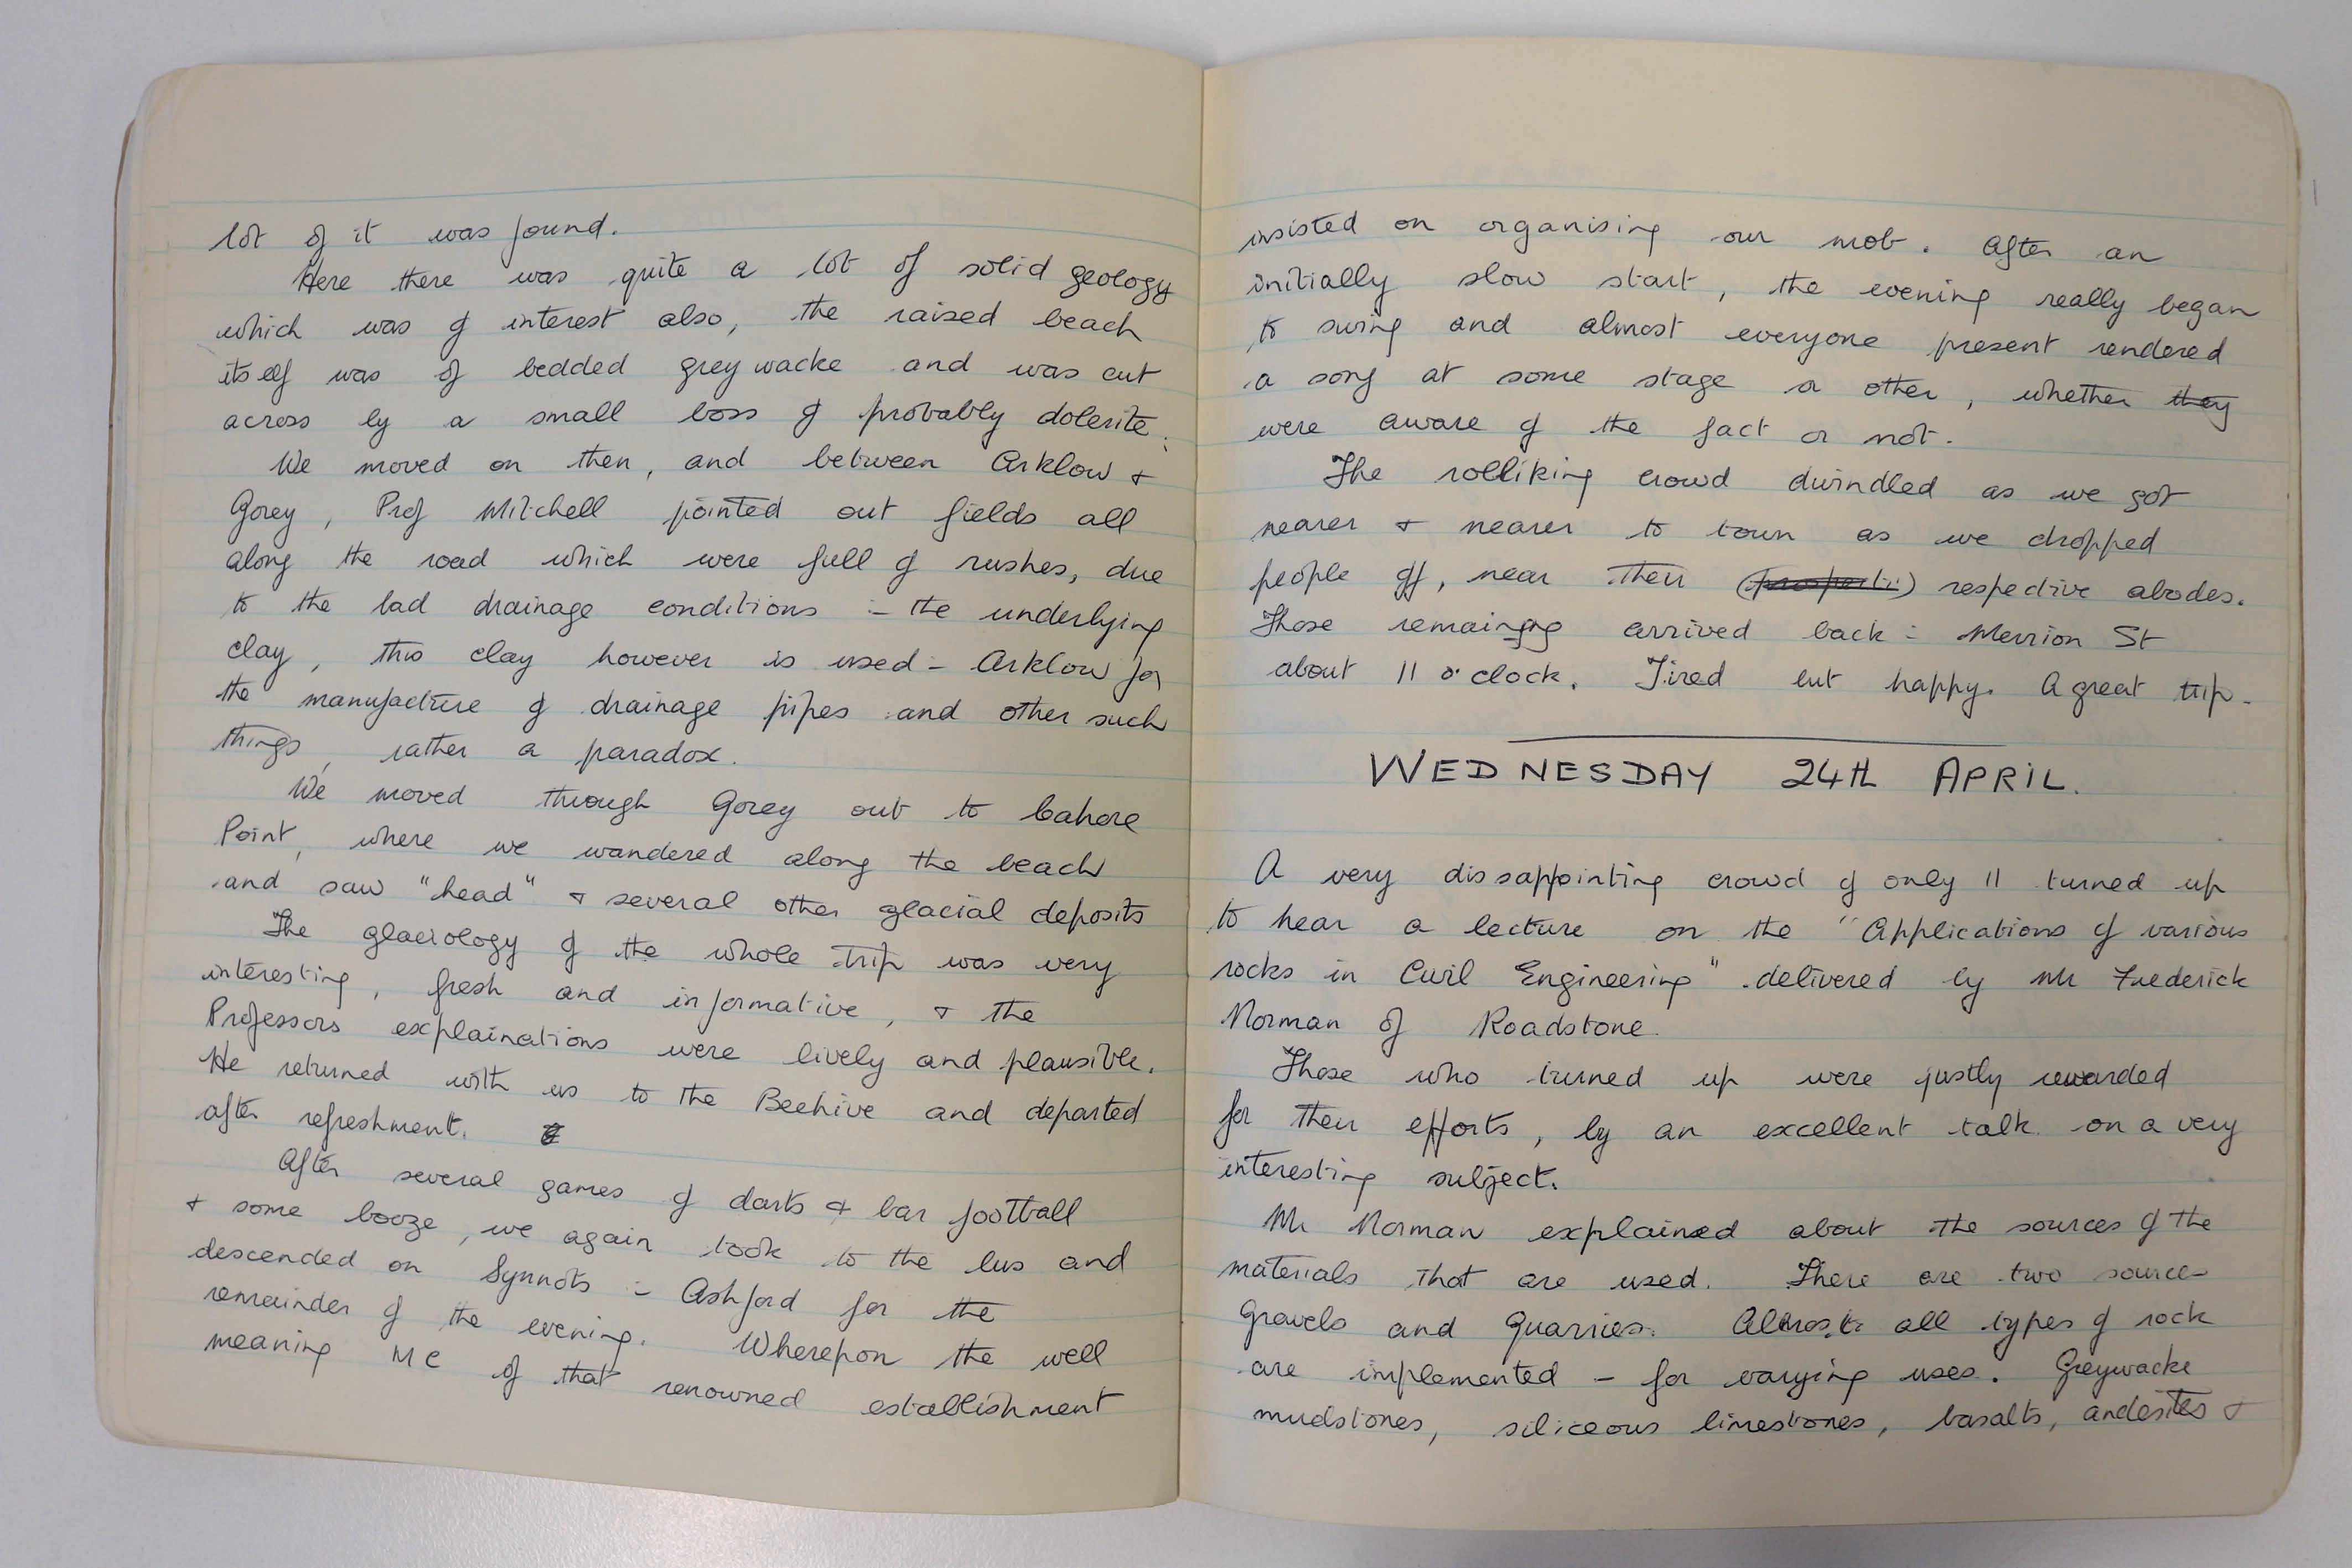 lot of it was found.
Here there was quite a lot of solid geology
which was of interest also, the raised beach
itself was of bedded greywacke and was cut
across by a small boss of probably dolerite.
We moved on then, and between Arklow +
Gorey, Prof Mitchell pointed out fields all
along the road which were full of rushes, due
to the bad drainage conditions :- the underlying
clay, this clay however is used - Arklow for
the manufacture of drainage pipes and other such
things, rather a paradox.
We moved through Gorey out to Cahore
Point, where we wandered along the beach
and saw "head" + several other glacial deposits
The glaciology of the whole trip was very
interesting, fresh and informative, + the
Professors explainations were lively and plausible.
He returned with us to the Beehive and departed
after refreshment.
After several games of darts + bar football
+ some booze, we again took to the bus and
descended on Synnots :- Ashford for the
remainder of the evening. Wherepon the well
meaning MC of that renowned establishment
insisted on organising our mob. After an
initially slow start, the evening really began
to swing and almost everyone present rendered
a song at some stage or other, whether they
were aware of the fact or not.
The rolliking crowd dwindled as we got
nearer + nearer to town as we dropped
people off, near their respective abodes.
Those remaining arrived back :- Merrion St
about 11 o'clock. Tired but happy. A great trip.
WEDNESDAY 24th APRIL.
A very dissappointing crowd of only 11 turned up
to hear a lecture on the "Applications of various
rocks in Civil Engineering" delivered by Mr Frederick
Norman of Roadstone.
Those who turned up were justly rewarded
for their efforts, by an excellent talk on a very
interesting subject.
Mr Norman explained about the sources of the
materials that are used. There are two source-
Gravels and Quarries. Almost all types of rock
are implemented - for varying uses. Greywacke
mudstones, siliceous limestones, basalts, andesites +